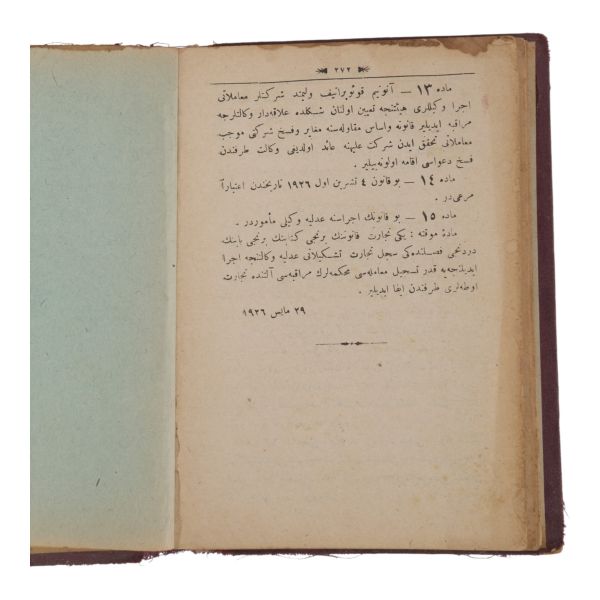 ٢٧٢
ماده ١٣ — آنونیم قوئوپراتیف ولیمتد شركتلر معاملاتی
اجرا وكیللری هیئتنجه تعیین اولنان شكلده علاقه‌دار وكالتلرجه
مراقبه ایدیلیر قانونه واساس مقاوله‌سنه مغایر وفسخ شركتی موجب
معاملاتی تحقق ایدن شركت علیهنه عائد اولدیغی وكالت طرفندن
فسخ دعواسی اقامه اولونه‌بیلیر .
ماده ١٤ — بو قانون ٤ تشرین اول ١٩٢٦ تاریخندن اعتباراً
مرعی‌در .
ماده ١٥ — بو قانونك اجراسنه عدلیه وكیلی مأموردر .
مادهٔ موقته : یكی تجارت قانوننك برنجی كتابنك برنجی بابنك
دردنجی فصلنده‌كی سجل تجارت تشكیلاتی عدلیه وكالتنجه اجرا
ایدیلنجه‌یه قدر تسجیل معامله‌سی محكمه‌لرك مراقبه‌سی آلتنده تجارت
اوطه‌لری طرفندن ایفا ایدیلیر .
٢٩ مایس ١٩٢٦